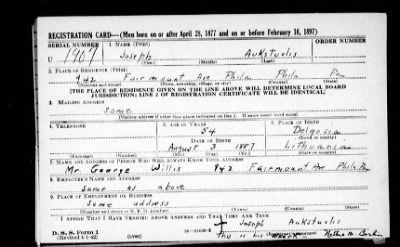 REGISTRATION CARD—(Men born on or after April 28, 1877 and on or before February 16, 1897)
SERIAL NUMBER 1. NAME (Print)
U 1907 Joseph Aukstuolis
2. PLACE OF RESIDENCE (Print)
942 Fairmount Ave Phila Phila Pa
[THE PLACE OF RESIDENCE GIVEN ON THE LINE ABOVE WILL DETERMINE LOCAL BOARD
JURISDICTION; LINE 2 OF REGISTRATION CERTIFICATE WILL BE IDENTICAL]
3. MAILING ADDRESS
Same
4. TELEPHONE 5. AGE IN YEARS 6. PLACE OF BIRTH
54
DATE OF BIRTH
August 3 1887 Lithuania
7. NAME AND ADDRESS OF PERSON WHO WILL ALWAYS KNOW YOUR ADDRESS
Mr. George Willis 942 Fairmount Ave Phila Pa
8. EMPLOYER'S NAME AND ADDRESS
Same as above
9. PLACE OF EMPLOYMENT OR BUSINESS
Same address
I AFFIRM THAT I HAVE VERIFIED ABOVE ANSWERS AND THAT THEY ARE TRUE.
Joseph Aukstuolis
D. S. S. Form 1
(Revised 4-1-42) (over) This is his mark